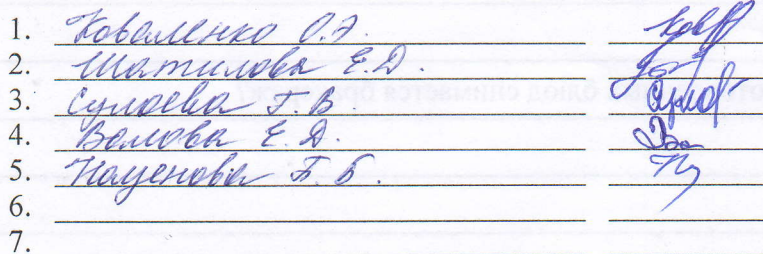 1. Коваленко О.Э.
2. Шатилова Е.Д.
3. Сулаева Г.В
4. Волова Е.Д.
5. Наценова Б.Б.
6.
7.